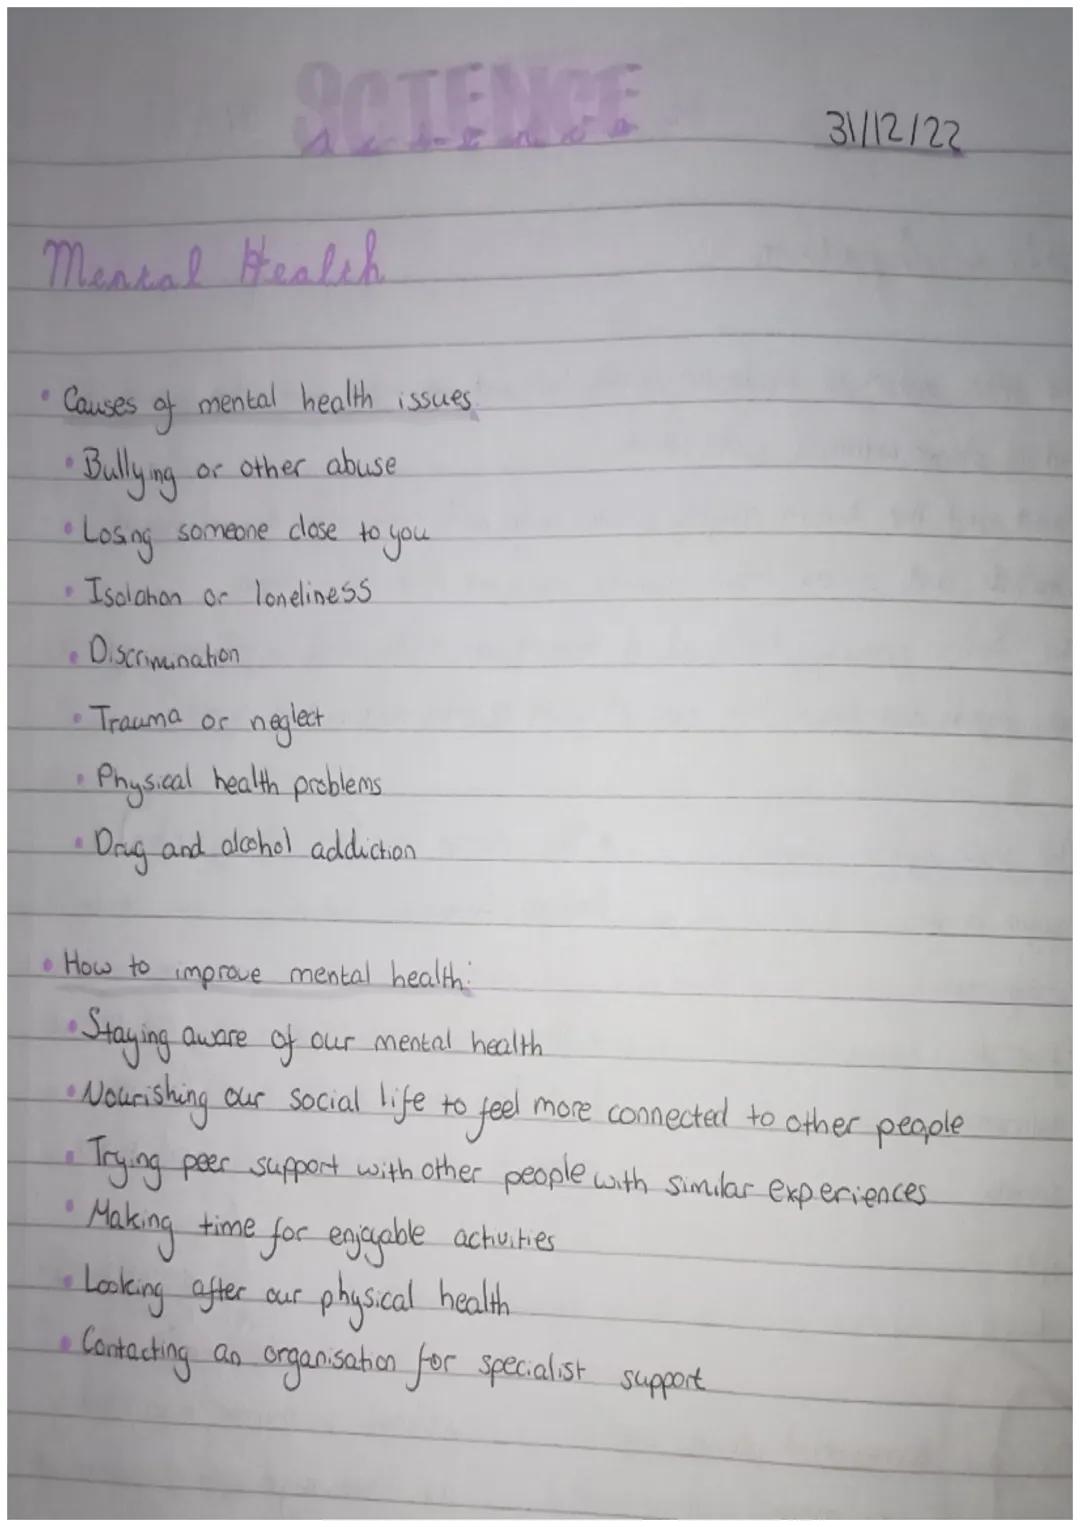 SCIENCE
science
31/12/22
Mental Health
• Causes of mental health issues:
• Bullying or other abuse
• Losing someone close to you
• Isolation or loneliness
• Discrimination
• Trauma or neglect
• Physical health problems
• Drug and alcohol addiction
• How to improve mental health:
• Staying aware of our mental health
• Nourishing our social life to feel more connected to other people
• Trying peer support with other people with similar experiences
• Making time for enjoyable activities
• Looking after our physical health
• Contacting an organisation for specialist support